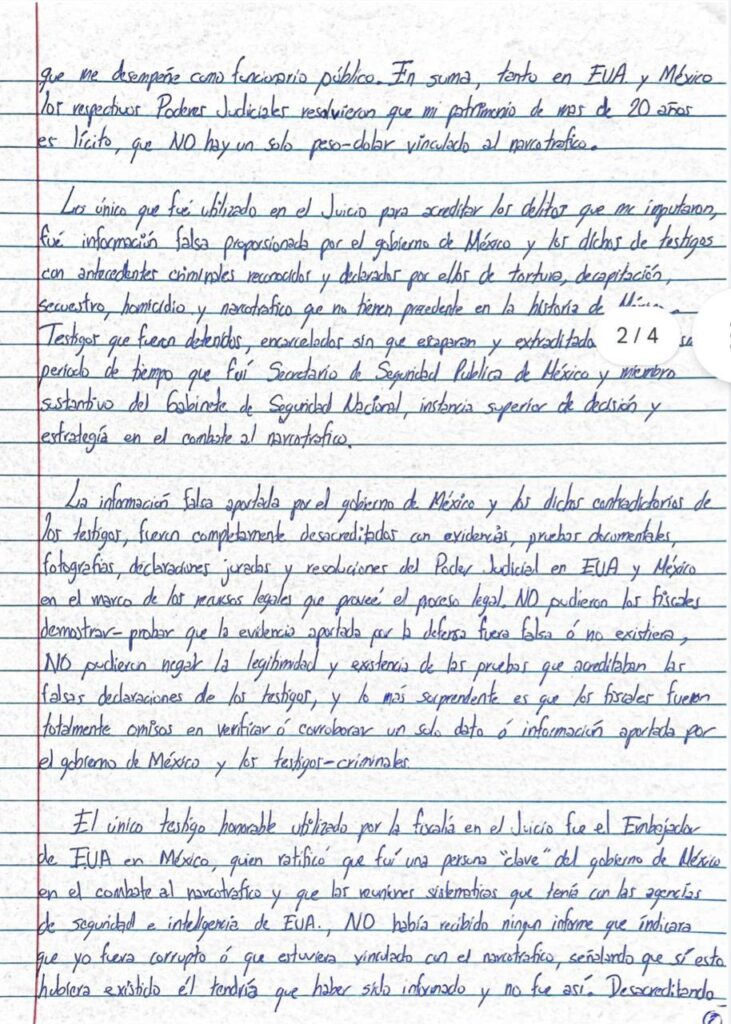 que me desempeñe como funcionario público. En suma, tanto en EUA y México
los respectivos Poderes Judiciales resolvieron que mi patrimonio de mas de 20 años
es lícito, que NO hay un solo peso-dolar vinculado al narcotrafico.
Los único que fué utilizado en el Juicio para acreditar los delitos que me imputaron,
fué información falsa proporsionada por el gobierno de México y los dichos de testigos
con antecedentes criminales reconocidos y declarados por ellos de tortura, decapitación,
secuestro, homicidio y narcotrafico que no tienen precedente en la historia de
Testigos que fueron detenidos, encarcelados sin que escaparan y extraditado
2/4
periodo de tiempo que fuí Secretario de Seguridad Publica de México y miembro
sustantivo del Gabinete de Seguridad Nacional, instancia superior de decisión y
estrategía en el combate al narcotrafico.
La información falsa aportada por el gobierno de México y los dichos contradictorios de
los testigos, fueron completamente desacreditados con evidencias, pruebas documentales,
fotografías, declaraciones juradas y resoluciones del Poder Judicial en EUA y México
en el marco de los recursos legales que proveé el proceso legal. NO pudieron los fiscales
demostrar-probar que la evidencia aportada por la defensa fuera falsa ó no existiera,
NO pudieron negar la legitimidad y existencia de las pruebas que acreditaban las
falsas declaraciones de los testigos, y lo más sorprendente es que los fiscales fueron
totalmente omisos en verificar ó corroborar un solo dato ó información aportada por
el gobierno de México y los testigos-criminales.
El único testigo honorable utilizado por la fiscalía en el Juicio fue el Embajador
de EUA en México, quien ratificó que fuí una persona "clave" del gobierno de México
en el combate al narcotrafico y que las reuniones sistematicas que tenía con las agencias
de seguridad e inteligencia de EUA., NO había recibido ningun informe que índicara
que yo fuera corrupto ó que estuviera vinculado con el narcotrafico, señalando que sí esto
hubiera existido él tendría que haber sido informado y no fue así. Desacreditando